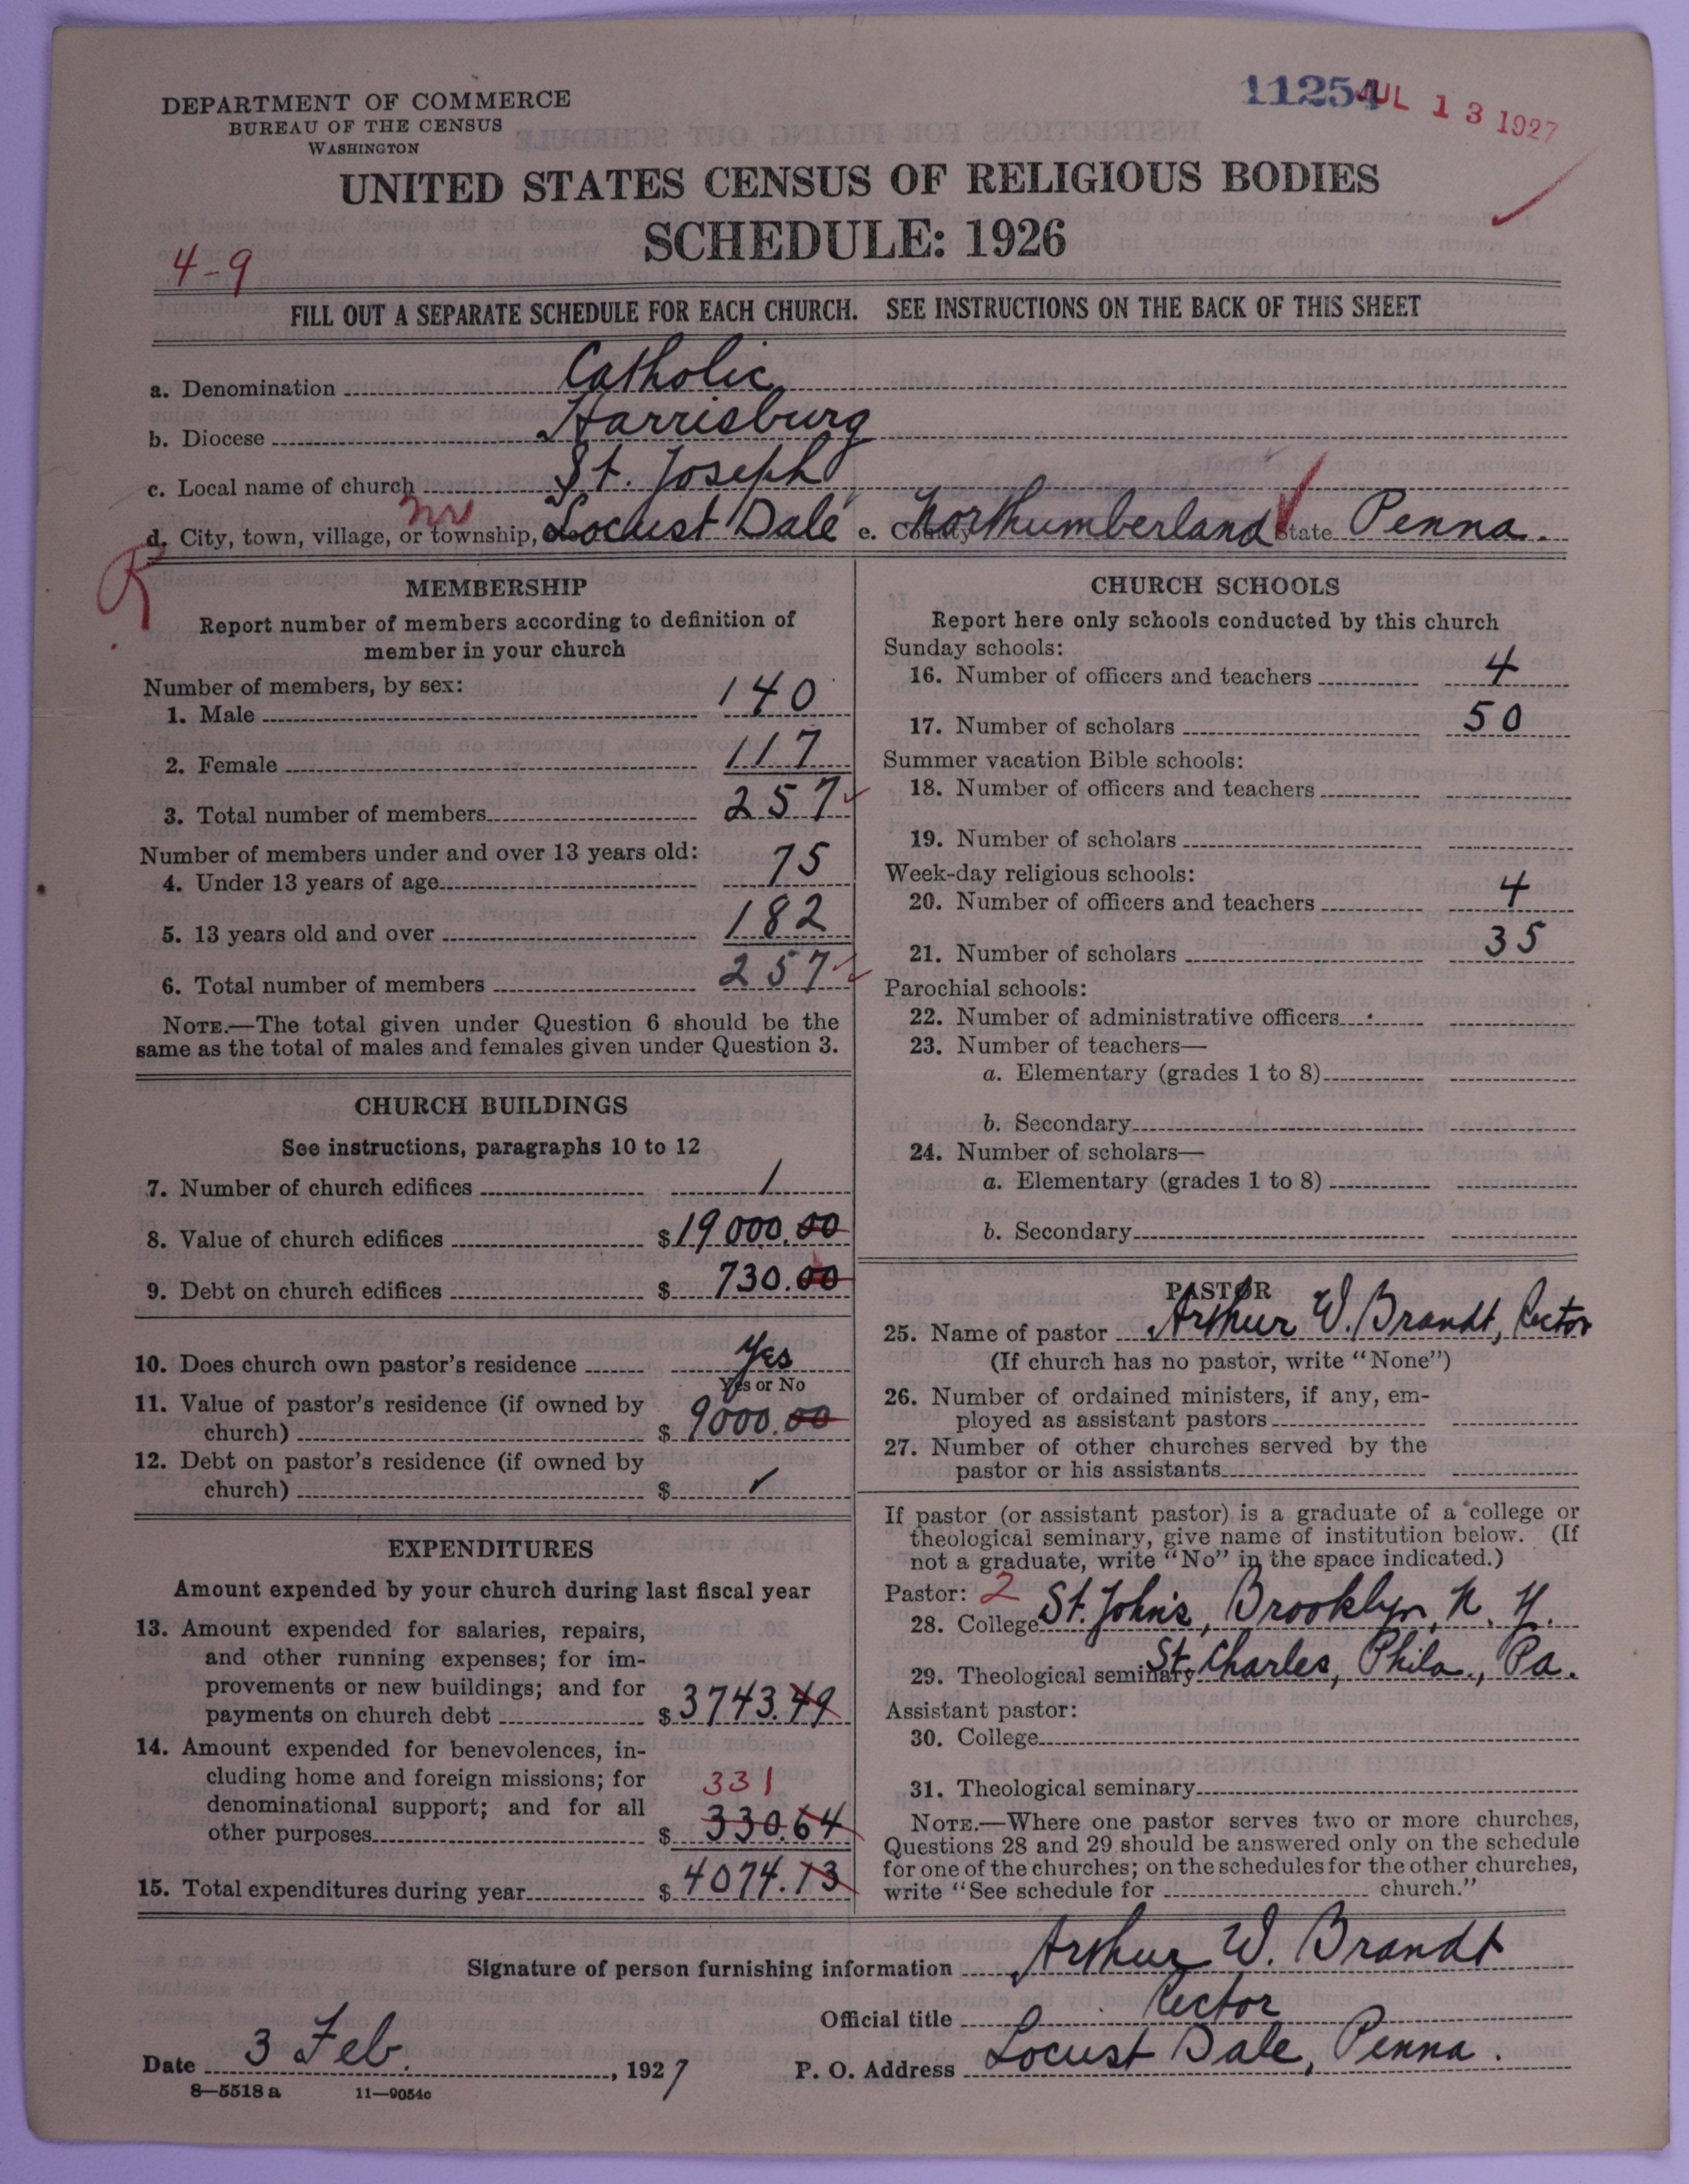 11254 JUL 13 1927
DEPARTMENT OF COMMERCE
BUREAU OF THE CENSUS
WASHINGTON
UNITED STATES CENSUS OF RELIGIOUS BODIES
SCHEDULE: 1926
4-9
FILL OUT A SEPARATE SCHEDULE FOR EACH CHURCH. SEE INSTRUCTIONS ON THE BACK OF THIS SHEET
a. Denomination Catholic
b. Diocese Harrisburg
c. Local name of church St. Joseph
d. City, town, village, or township, Locust Dale e. County Northumberland State Penna.
R
MEMBERSHIP
Report number of members according to definition of
member in your church
Number of members, by sex:
1. Male 140
2. Female 117
3. Total number of members 257
Number of members under and over 13 years old:
4. Under 13 years of age 75
5. 13 years old and over 182
6. Total number of members 257
NOTE.—The total given under Question 6 should be the
same as the total of males and females given under Question 3.
CHURCH BUILDINGS
See instructions, paragraphs 10 to 12
7. Number of church edifices 1
8. Value of church edifices $19000.00
9. Debt on church edifices $730.00
10. Does church own pastor's residence Yes
Yes or No
11. Value of pastor's residence (if owned by
church) $9000.00
12. Debt on pastor's residence (if owned by
church) $ ✓
EXPENDITURES
Amount expended by your church during last fiscal year
13. Amount expended for salaries, repairs,
and other running expenses; for im-
provements or new buildings; and for
payments on church debt $3743.49
14. Amount expended for benevolences, in-
cluding home and foreign missions; for 331
denominational support; and for all
other purposes $330.64
15. Total expenditures during year $4074.13
CHURCH SCHOOLS
Report here only schools conducted by this church
Sunday schools:
16. Number of officers and teachers 4
17. Number of scholars 50
Summer vacation Bible schools:
18. Number of officers and teachers
19. Number of scholars
Week-day religious schools:
20. Number of officers and teachers 4
21. Number of scholars 35
Parochial schools:
22. Number of administrative officers
23. Number of teachers—
a. Elementary (grades 1 to 8)
b. Secondary
24. Number of scholars—
a. Elementary (grades 1 to 8)
b. Secondary
PASTOR
25. Name of pastor Arthur W. Brandt, Rector
(If church has no pastor, write "None")
26. Number of ordained ministers, if any, em-
ployed as assistant pastors
27. Number of other churches served by the
pastor or his assistants
If pastor (or assistant pastor) is a graduate of a college or
theological seminary, give name of institution below. (If
not a graduate, write "No" in the space indicated.)
Pastor: 2
28. College St. John's, Brooklyn, N. Y.
29. Theological seminary St. Charles, Phila., Pa.
Assistant pastor:
30. College
31. Theological seminary
NOTE.—Where one pastor serves two or more churches,
Questions 28 and 29 should be answered only on the schedule
for one of the churches; on the schedules for the other churches,
write "See schedule for church."
Signature of person furnishing information Arthur W. Brandt
Official title Rector
Date 3 Feb., 1927 P. O. Address Locust Dale, Penna.
8—5518 a 11—9054c